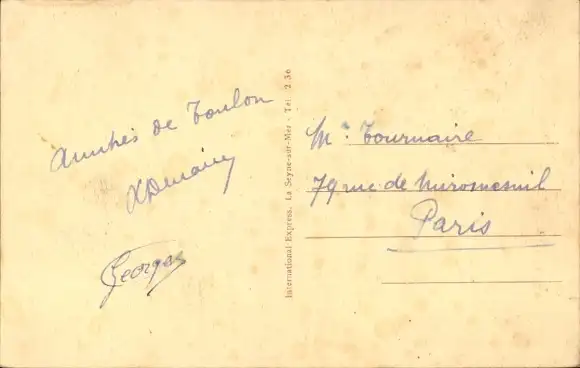 Amitiés de Toulon
Georges
International Express. La Seyne-sur-Mer - Tél. 2.36
Mr Tournaire
79 rue de Miromesnil
Paris